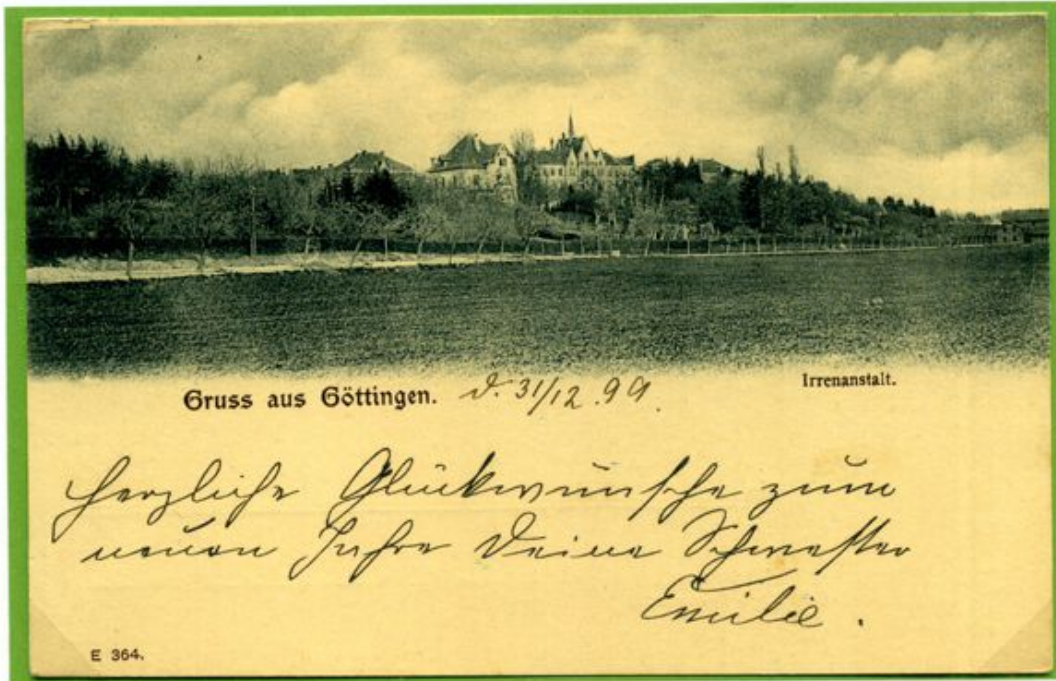 Gruss aus Göttingen. d. 31/12. 99.
Irrenanstalt.
Herzliche Glückwünsche zum
neuen Jahre Deine Schwester
Emilie.
E 364.